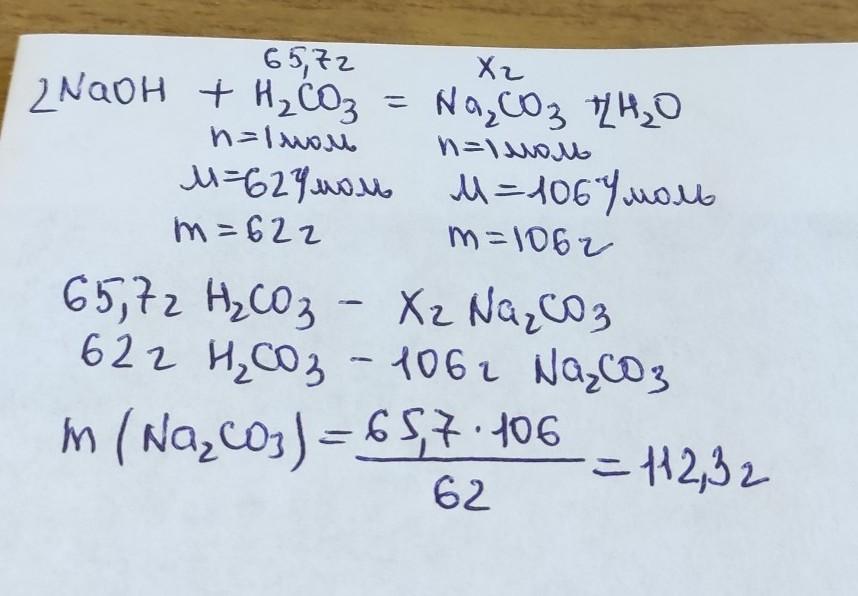 65,7г xг
2NaOH + H₂CO₃ = Na₂CO₃ + 2H₂O
n=1моль n=1моль
M=62г/моль M=106г/моль
m=62г m=106г
65,7г H₂CO₃ - xг Na₂CO₃
62г H₂CO₃ - 106г Na₂CO₃
m(Na₂CO₃) = 65,7·106 / 62 = 112,3г